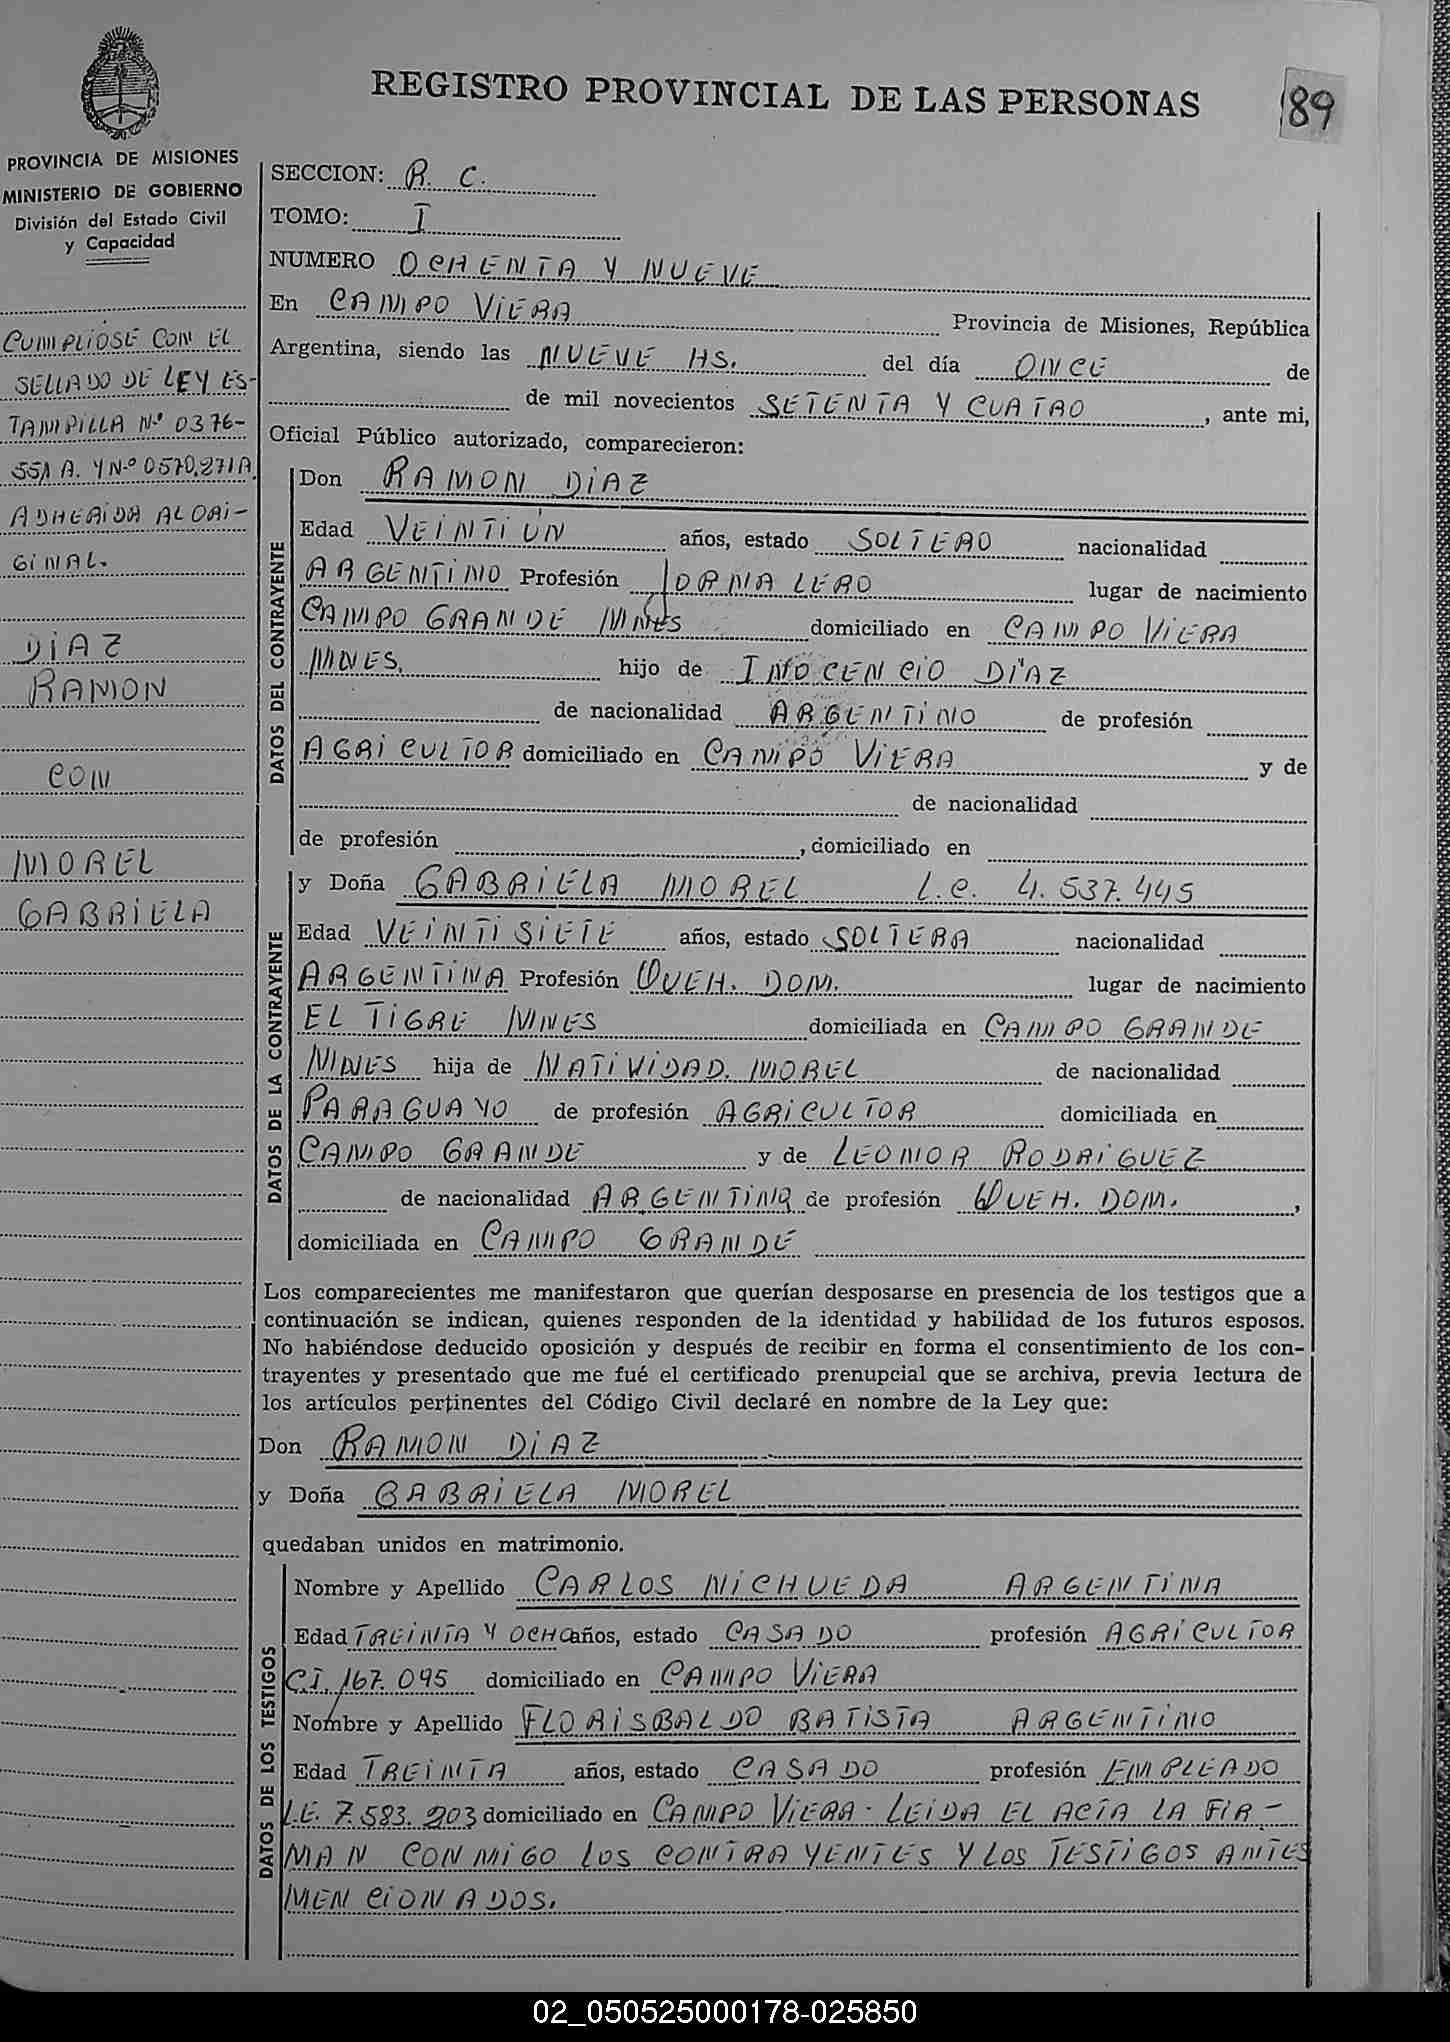 REGISTRO PROVINCIAL DE LAS PERSONAS
89
PROVINCIA DE MISIONES
MINISTERIO DE GOBIERNO
División del Estado Civil
y Capacidad
CUMPLIÓSE CON EL
SELLADO DE LEY ES-
TAMPILLA Nº 0376-
551 A. Y Nº 0570.271 A
ADHERIDA AL ORI-
GINAL.
DIAZ
RAMON
CON
MOREL
GABRIELA
SECCION: R. C.
TOMO: I
NUMERO OCHENTA Y NUEVE
En CAMPO VIERA Provincia de Misiones, República
Argentina, siendo las NUEVE HS. del día ONCE de
de mil novecientos SETENTA Y CUATRO, ante mi,
Oficial Público autorizado, comparecieron:
DATOS DEL CONTRAYENTE
Don RAMON DIAZ
Edad VEINTIUN años, estado SOLTERO nacionalidad
ARGENTINO Profesión JORNALERO lugar de nacimiento
CAMPO GRANDE MNES domiciliado en CAMPO VIERA
MNES. hijo de INOCENCIO DIAZ
de nacionalidad ARGENTINO de profesión
AGRICULTOR domiciliado en CAMPO VIERA y de
de nacionalidad
de profesión , domiciliado en
DATOS DE LA CONTRAYENTE
y Doña GABRIELA MOREL L.C. 4.537.445
Edad VEINTISIETE años, estado SOLTERA nacionalidad
ARGENTINA Profesión QUEH. DOM. lugar de nacimiento
EL TIGRE MNES domiciliada en CAMPO GRANDE
MNES hija de NATIVIDAD MOREL de nacionalidad
PARAGUAYO de profesión AGRICULTOR domiciliada en
CAMPO GRANDE y de LEONOR RODRIGUEZ
de nacionalidad ARGENTINA de profesión QUEH. DOM.,
domiciliada en CAMPO GRANDE
Los comparecientes me manifestaron que querían desposarse en presencia de los testigos que a
continuación se indican, quienes responden de la identidad y habilidad de los futuros esposos.
No habiéndose deducido oposición y después de recibir en forma el consentimiento de los con-
trayentes y presentado que me fué el certificado prenupcial que se archiva, previa lectura de
los artículos pertinentes del Código Civil declaré en nombre de la Ley que:
Don RAMON DIAZ
y Doña GABRIELA MOREL
quedaban unidos en matrimonio.
DATOS DE LOS TESTIGOS
Nombre y Apellido CARLOS NICHUEDA ARGENTINA
Edad TREINTA Y OCHO años, estado CASADO profesión AGRICULTOR
C.I. 167.095 domiciliado en CAMPO VIERA
Nombre y Apellido FLORISBALDO BATISTA ARGENTINO
Edad TREINTA años, estado CASADO profesión EMPLEADO
L.E. 7.583.203 domiciliado en CAMPO VIERA - LEIDA EL ACTA LA FIR-
MAN CONMIGO LOS CONTRAYENTES Y LOS TESTIGOS ANTES
MENCIONADOS.
02_050525000178-025850